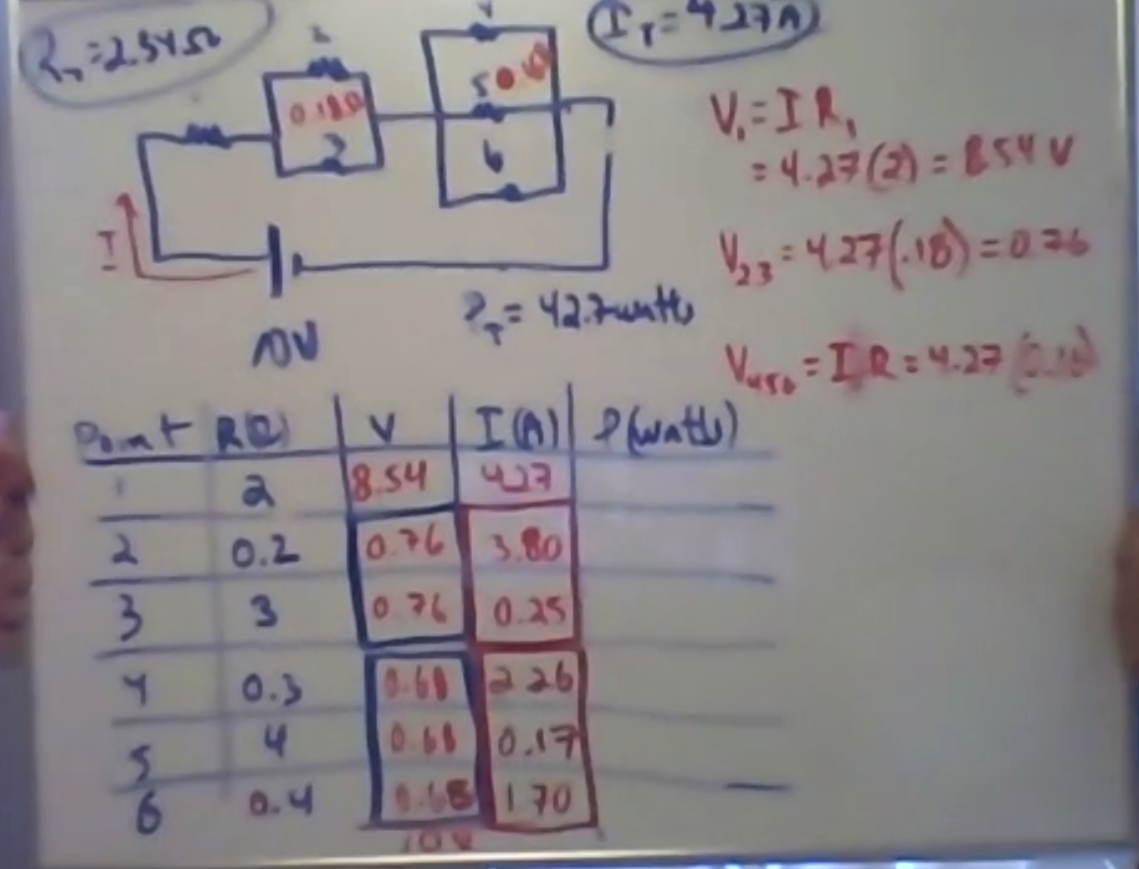 R_T = 2.34Ω
I_T = 4.27A
2
4
0.18Ω
5
3
6
I
10V
P_T = 42.7 watts
V₁ = I R₁
= 4.27(2) = 8.54 V
V₂₃ = 4.27(.18) = 0.76
V₄₅₆ = I R = 4.27 (0.16)
Point R(Ω) V I(A) P(watts)
1 2 8.54 4.27
2 0.2 0.76 3.80
3 3 0.76 0.25
4 0.3 0.68 2.26
5 4 0.68 0.17
6 0.4 0.68 1.70
10V